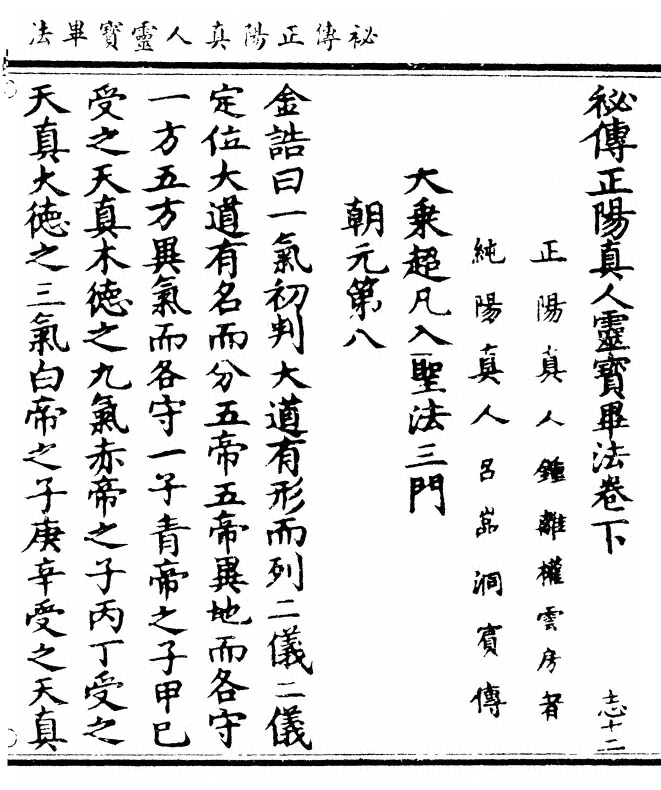 秘傳正陽真人靈寶畢法
秘傳正陽真人靈寶畢法卷下
志十二
正陽真人鍾離權雲房著
純陽真人呂嵓洞賓傳
大乗超凡入聖法三門
朝元第八
金誥曰一氣初判大道有形而列二儀二儀
定位大道有名而分五帝五帝異地而各守
一方五方異氣而各守一子青帝之子甲巳
受之天真木徳之九氣赤帝之子丙丁受之
天真火徳之三氣白帝之子庚辛受之天真